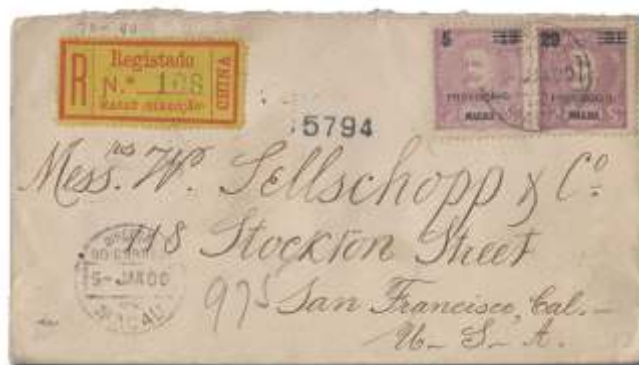 R
Registado
N.º 108
CHINA
5
20
PROVISORIO
MACAU
MACAU
5794
Mess.rs W. Sellschopp & Co.
118 Stockton Street
San Francisco, Cal.
U.S.A.
975
5-JAN 00
MACAU